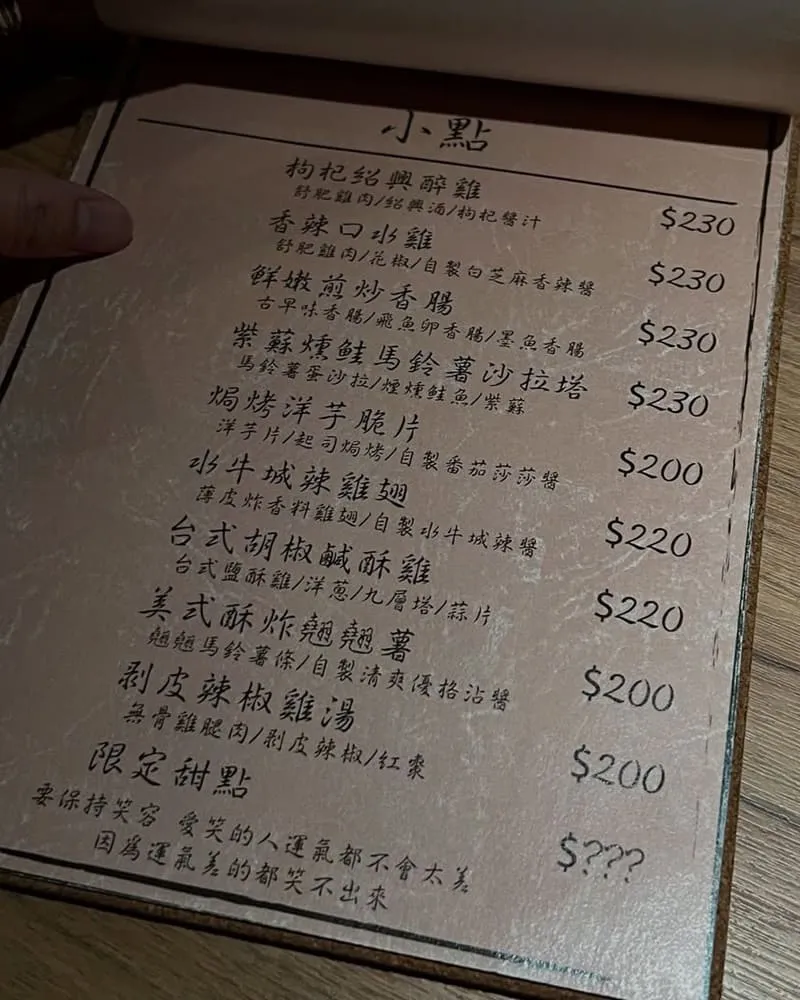 小點
枸杞紹興醉雞
舒肥雞肉/紹興酒/枸杞醬汁
$230
香辣口水雞
舒肥雞肉/花椒/自製白芝麻香辣醬
$230
鮮嫩煎炒香腸
古早味香腸/飛魚卵香腸/墨魚香腸
$230
紫蘇燻鮭馬鈴薯沙拉塔
馬鈴薯蛋沙拉/煙燻鮭魚/紫蘇
$230
焗烤洋芋脆片
洋芋片/起司焗烤/自製番茄莎莎醬
$200
水牛城辣雞翅
薄皮炸香料雞翅/自製水牛城辣醬
$220
台式胡椒鹹酥雞
台式鹽酥雞/洋蔥/九層塔/蒜片
$220
美式酥炸翹翹薯
翹翹馬鈴薯條/自製清爽優格沾醬
$200
剥皮辣椒雞湯
無骨雞腿肉/剥皮辣椒/紅棗
$200
限定甜點
$???
要保持笑容 愛笑的人運氣都不會太差
因為運氣差的都笑不出來